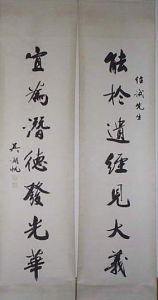 能於遺經見大義
伯誠先生
宜為潛德發光華
吴湖帆